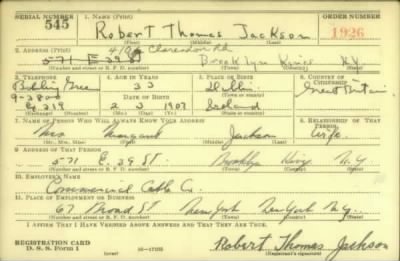 SERIAL NUMBER 1. NAME (Print) ORDER NUMBER
545 Robert Thomas Jackson 1926
2. ADDRESS (Print) 4102 Clarendon Rd
571 E 39 ST Brooklyn Kings N.Y.
(Number and street or R. F. D. number) (Town) (County) (State)
3. TELEPHONE 4. AGE IN YEARS 5. PLACE OF BIRTH 6. COUNTRY OF CITIZENSHIP
33 Dublin Great Britain
9-3800 DATE OF BIRTH (Town or county)
Ex 319 2 3 1907 Ireland
(Exchange) (Number) (Mo.) (Day) (Yr.) (State or country)
7. NAME OF PERSON WHO WILL ALWAYS KNOW YOUR ADDRESS 8. RELATIONSHIP OF THAT PERSON
Mrs Margaret Jackson Wife
(Mr., Mrs., Miss) (First) (Middle) (Last)
9. ADDRESS OF THAT PERSON
571 E. 39 ST. Brooklyn Kings N.Y.
(Number and street or R. F. D. number) (Town) (County) (State)
10. EMPLOYER'S NAME
Commercial Cable Co.
11. PLACE OF EMPLOYMENT OR BUSINESS
67 Broad St New York New York N.Y.
(Number and street or R. F. D. number) (Town) (County) (State)
I AFFIRM THAT I HAVE VERIFIED ABOVE ANSWERS AND THAT THEY ARE TRUE.
REGISTRATION CARD
D. S. S. Form 1 (over) 16-17105 Robert Thomas Jackson
(Registrant's signature)